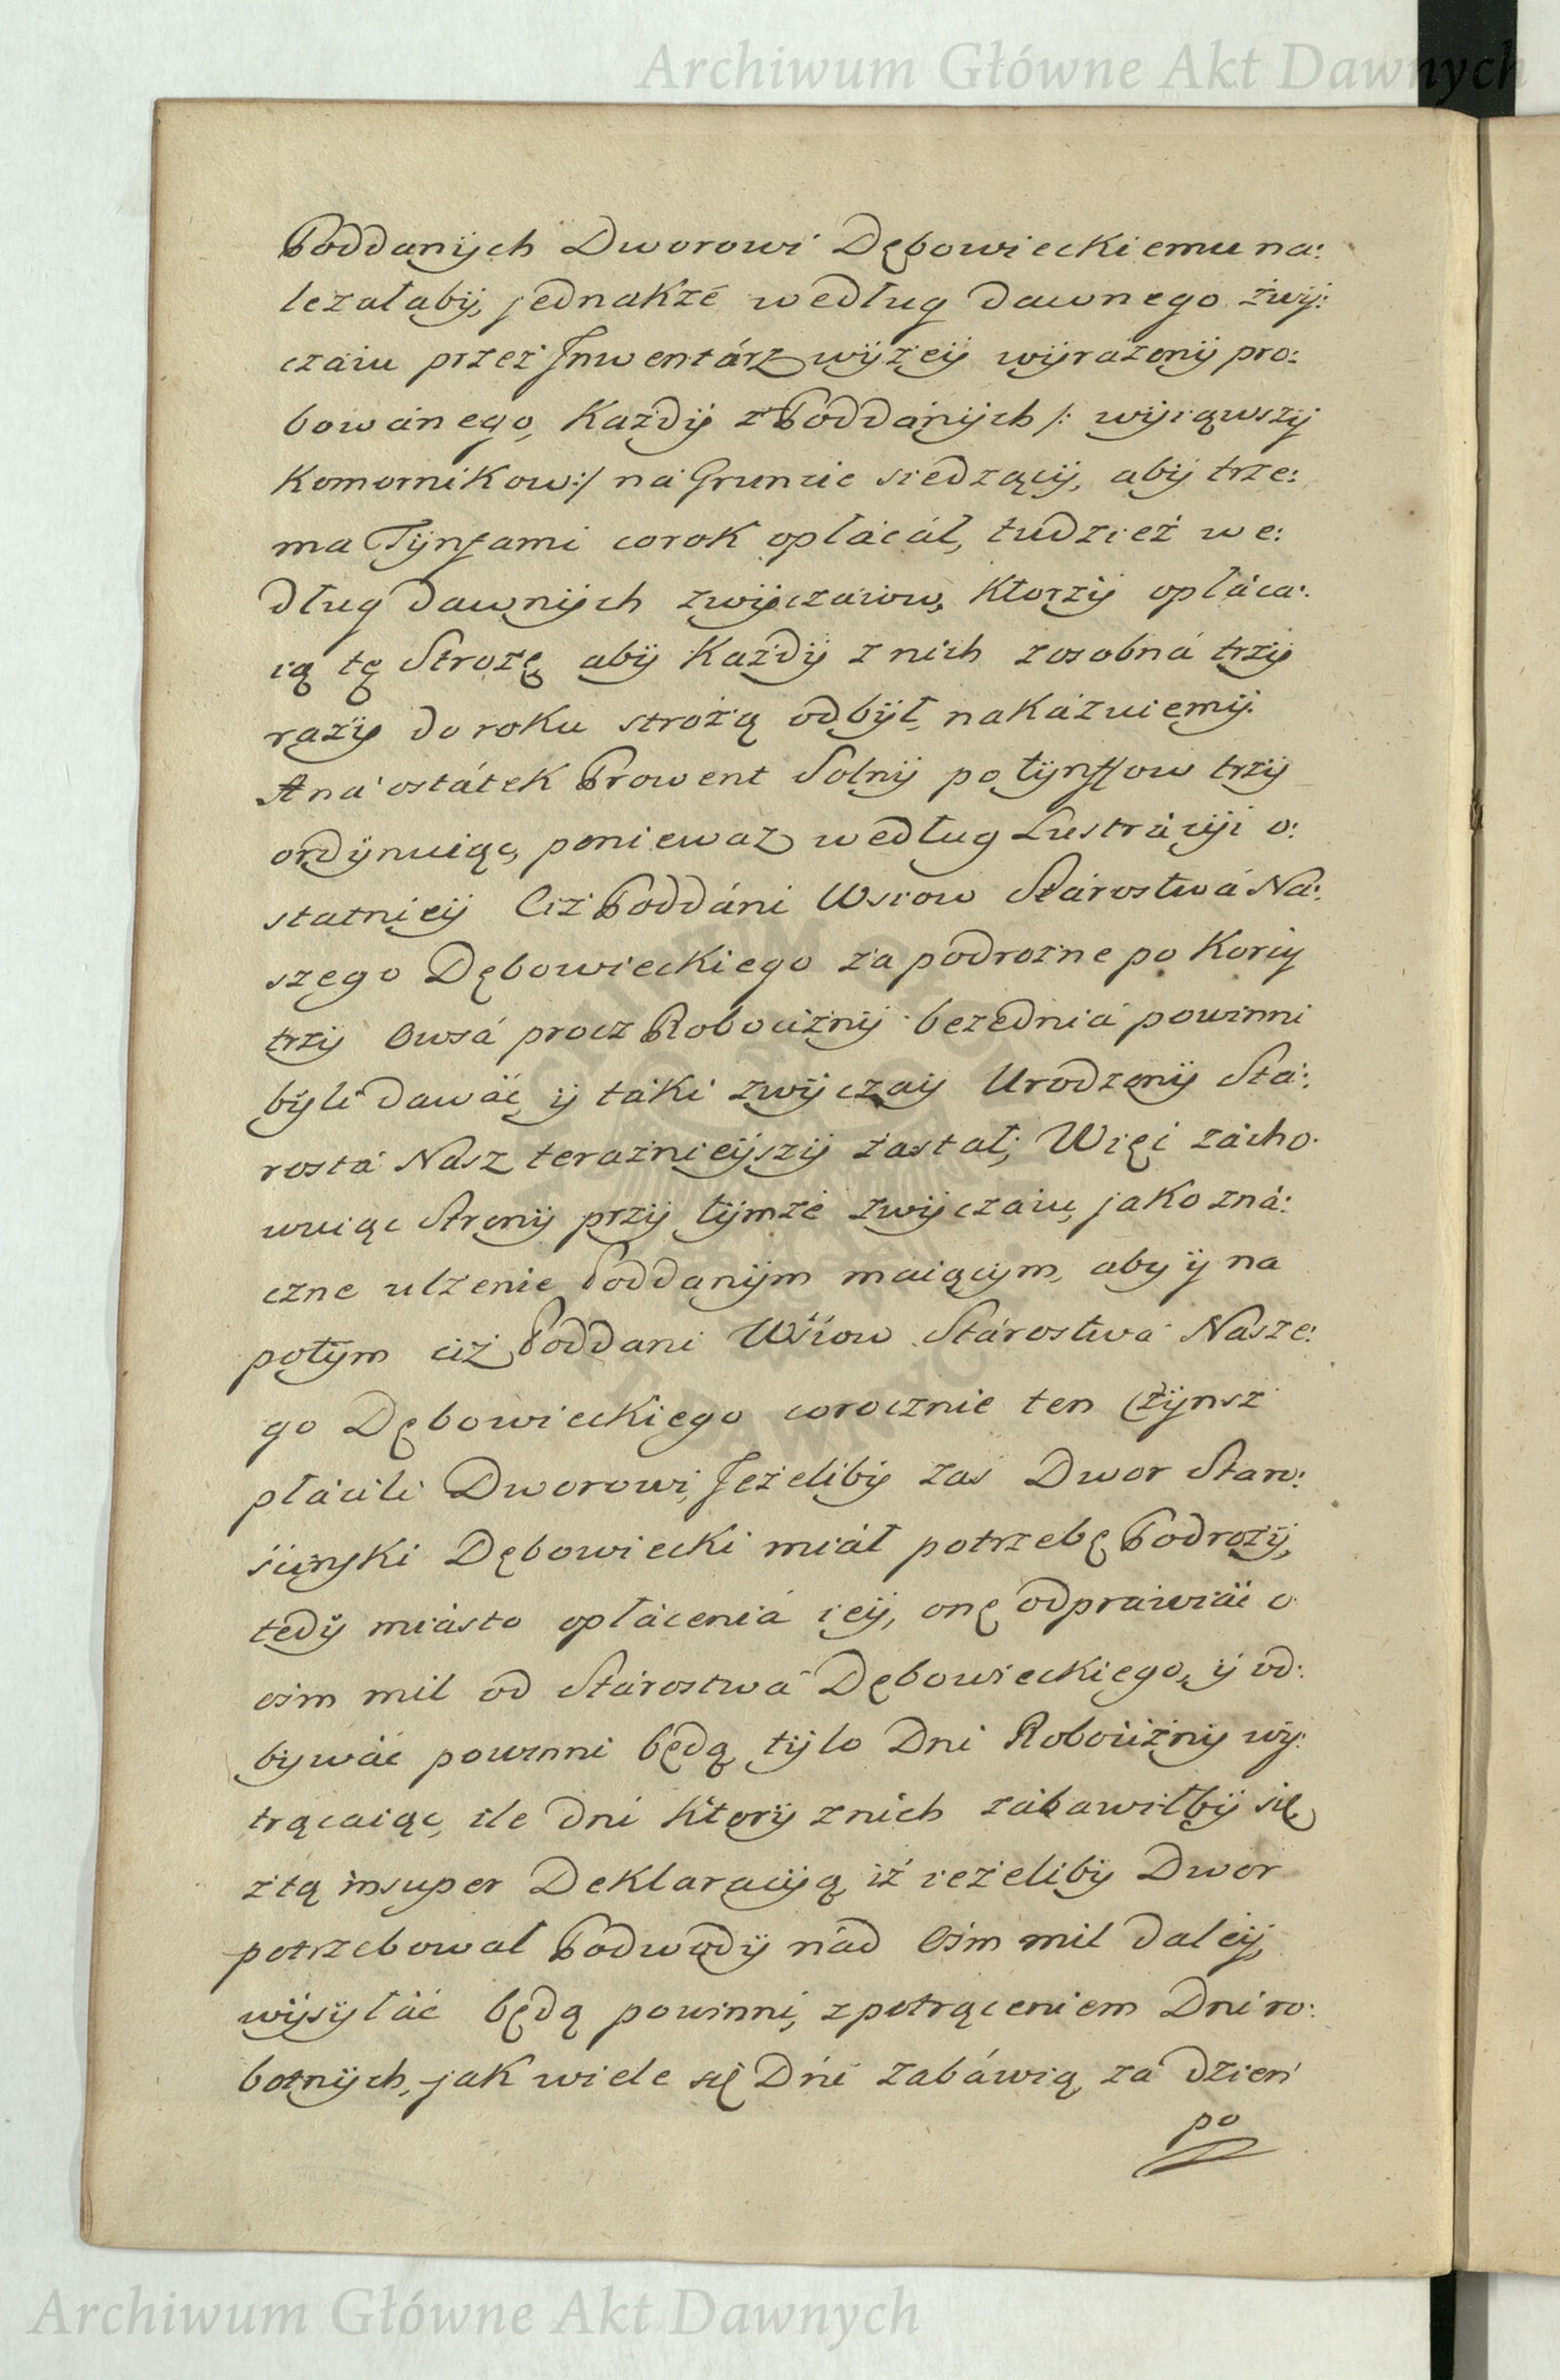 Archiwum Główne Akt Dawnych
Poddanÿch Dworowi Dębowieckiemu na:
lezałabÿ, jednakże według dawnego zwÿ:
czaiu przez Jnwentárz wÿżeÿ wÿrażonÿ pro:
bowánego, Każdÿ z Poddánÿch /: wÿiąwszÿ
Komornikow :/ na Gruncie siedzącÿ, abÿ trze:
ma Tÿnfami corok opłácáł, tudzież we:
dług dawnÿch zwÿczaiow, Ktorzÿ opłáca:
ią tę Strożę abÿ Każdÿ z nich zosobná trzÿ
razÿ do roku strożą odbÿł, nakázuiemÿ.
A ná ostátek Prowent Solnÿ po tÿnffow trzÿ
ordÿnuiąc, poniewaz według Lustrácÿi o:
statnieÿ Ciż Poddáni Wsiow Stárostwá Na:
szego Dębowieckiego za podrożne po Korcÿ
trzÿ Owsá procz Robociznÿ bezednia powinni
bÿli dawáć, ÿ táki zwÿczaÿ Urodzonÿ Stá:
rosta Nász teraznieÿszÿ zastał; Więc zácho:
wuiąc Stronÿ przÿ tÿmże zwÿczaiu, jako zná:
czne ulżenie Poddanÿm maiącÿm, aby ÿ na
potÿm ciż Poddani Wśiow Stárostwa Násze:
go Dębowieckiego corocznie ten Czÿnsz
płácili Dworowi, Jeżelibÿ zas Dwor Staro:
śćiński Dębowiecki miáł potrzebę Podrożÿ,
tedÿ miásto opłácenia ieÿ, onę odprawiáć o
ośm mil od Stárostwá Dębowieckiego, ÿ od:
bÿwáć powinni będą, tÿlo Dni Robociznÿ wÿ:
trącaiąc, ile dni Ktorÿ z nich zábawiłbÿ się
z tą insuper Deklaracÿą, iż ieżelibÿ Dwor
potrzebował Podwodÿ nád Ośm mil daleÿ,
wÿsÿłáć będą powinni, z potrąceniem Dni ro:
botnÿch, jak wiele się Dni zabáwią, za dzień
po
Archiwum Główne Akt Dawnych